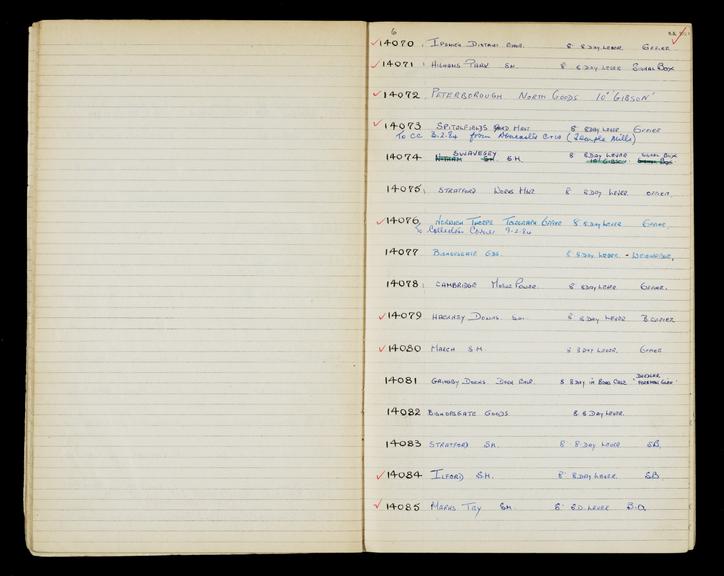 6
14070 Ipswich District Engr. 8" 8 Day Lever Office
14071 Highams Park S.M. 8 8 Day Lever Signal Box
14072 Peterborough North Goods 10" 'Gibson'
14073 Spitalfields Hd Man 8 8 Day Lever Office
To CC 3.2.84 from (Temple Mills)
Swavesey
14074 Witham S.M. S.M. 8 8 Day Lever Signal Box
10" Gibson
14075 Stratford Works Man 8 8 Day Lever Office
14076 Norwich Thorpe Telegraph Office 8 8 Day Lever Office
To Collectors Corner 9-2-84
14077 Bishopsgate Gds. 8 8 Day Lever - Weighbridge
14078 Cambridge Motive Power 8 8 Day Lever Office.
14079 Hackney Downs 8" 8 Day Lever B Office
14080 March S.M. 8 8 Day Lever Office
14081 Grimsby Docks Dock 8 8 Day in Case
'Foreman
14082 Bishopsgate Goods 8 8 Day Lever.
14083 Stratford S.M. 8" 8 Day Lever S.B.
14084 Ilford S.M. 8" 8 Day Lever S.B.
14085 Marks Tey S.M. 8" 8 D. Lever B.O.